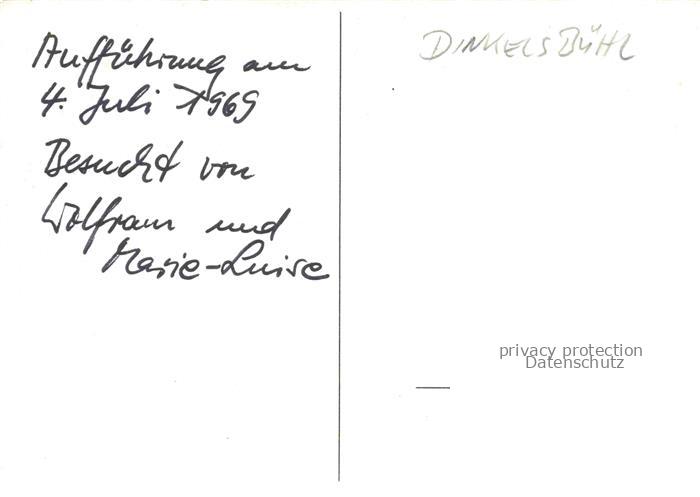 Aufführung am
4. Juli 1969
Besucht von
Wolfram und
Marie-Luise
DINKELSBÜHL
privacy protection
Datenschutz